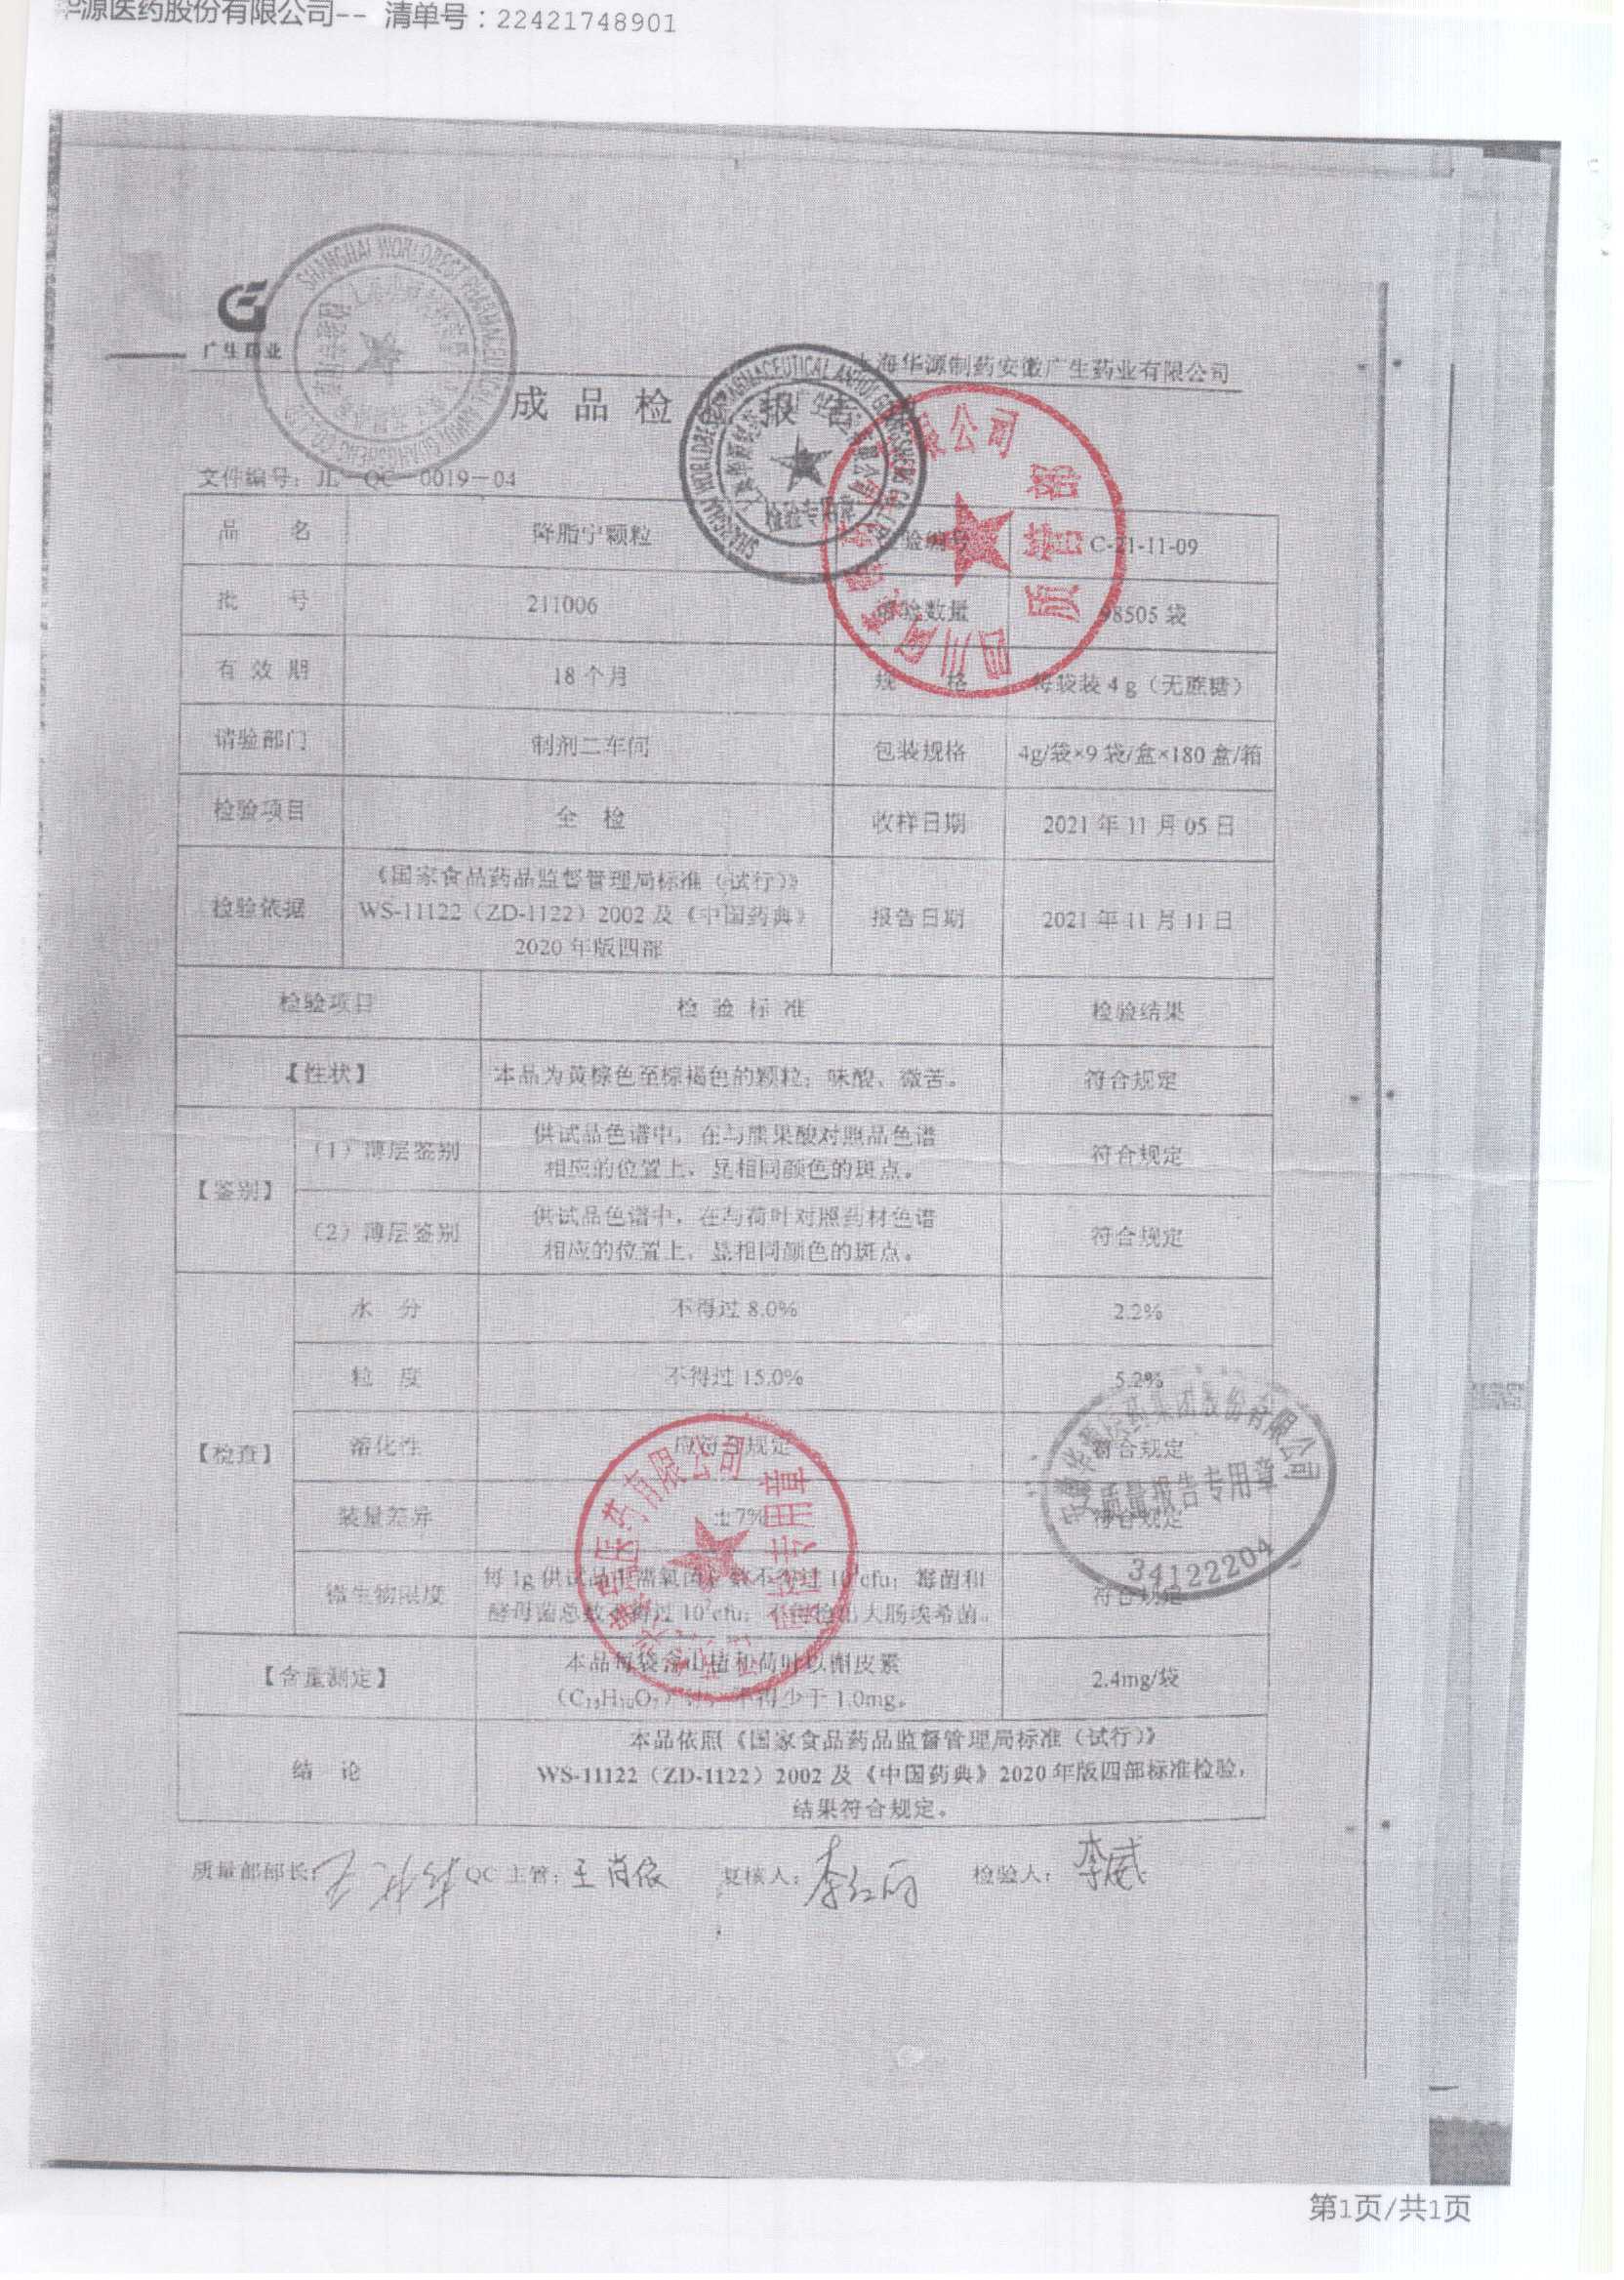 华源医药股份有限公司-- 清单号：22421748901
广生药业
上海华源制药安徽广生药业有限公司
成品检 报告
文件编号：JL-QC-0019-04
品 名 降脂宁颗粒 检验编号 C-21-11-09
批 号 211006 请验数量 98505 袋
有 效 期 18 个月 规 格 每袋装 4 g（无蔗糖）
请验部门 制剂二车间 包装规格 4g/袋×9 袋/盒×180 盒/箱
检验项目 全 检 收样日期 2021 年 11 月 05 日
检验依据 《国家食品药品监督管理局标准（试行）》
WS-11122（ZD-1122）2002 及《中国药典》
2020 年版四部
报告日期 2021 年 11 月 11 日
检验项目 检 验 标 准 检验结果
【性状】 本品为黄棕色至棕褐色的颗粒；味酸、微苦。 符合规定
【鉴别】
（1）薄层鉴别 供试品色谱中，在与熊果酸对照品色谱
相应的位置上，显相同颜色的斑点。 符合规定
（2）薄层鉴别 供试品色谱中，在与荷叶对照药材色谱
相应的位置上，显相同颜色的斑点。 符合规定
【检查】
水 分 不得过 8.0% 2.2%
粒 度 不得过 15.0% 5.2%
溶化性 应符合规定 符合规定
装量差异 ±7% 符合规定
微生物限度 每 1g 供试品中需氧菌总数不得过 cfu；霉菌和
酵母菌总数不得过 10²cfu；不得检出大肠埃希菌。 符合规定
【含量测定】 本品每袋含山楂和荷叶以槲皮素
（C₁₅H₁₀O₇）计，不得少于 1.0mg。 2.4mg/袋
结 论 本品依照《国家食品药品监督管理局标准（试行）》
WS-11122（ZD-1122）2002 及《中国药典》2020 年版四部标准检验，
结果符合规定。
质量部部长： QC 主管：王肖依 复核人：李红丽 检验人：李威
SHANGHAI WORLDBEST PHARMACEUTICAL ANHUI GUANGSHENG CO.,LTD
检验专用章
质管部
质量报告专用章
34122204
第1页/共1页